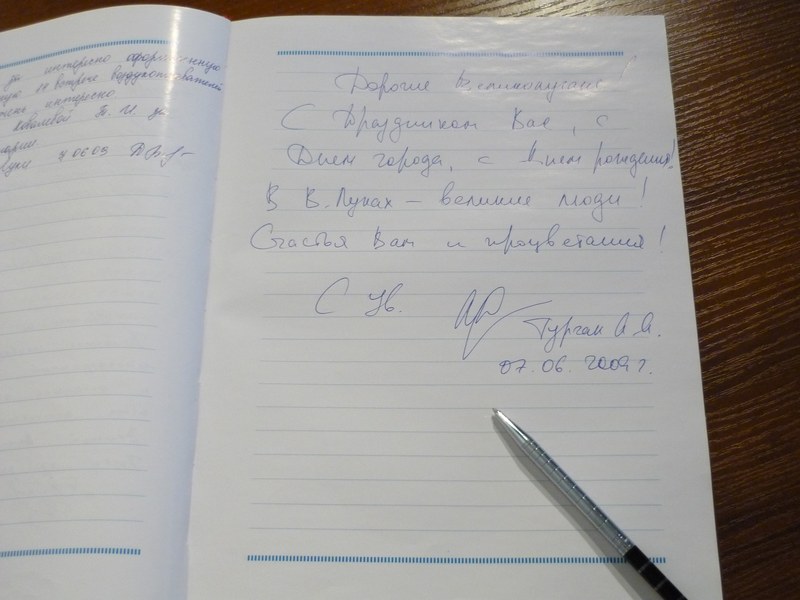 интересно оформленную
встрече воздухоплавателей
интересно.
Дорогие Великолучане!
С Праздником Вас, с
Днем города, с Днем рождения!
В В. Луках — великие люди!
Счастья Вам и процветания!
С Ув.
А. А.
07.06.2009 г.